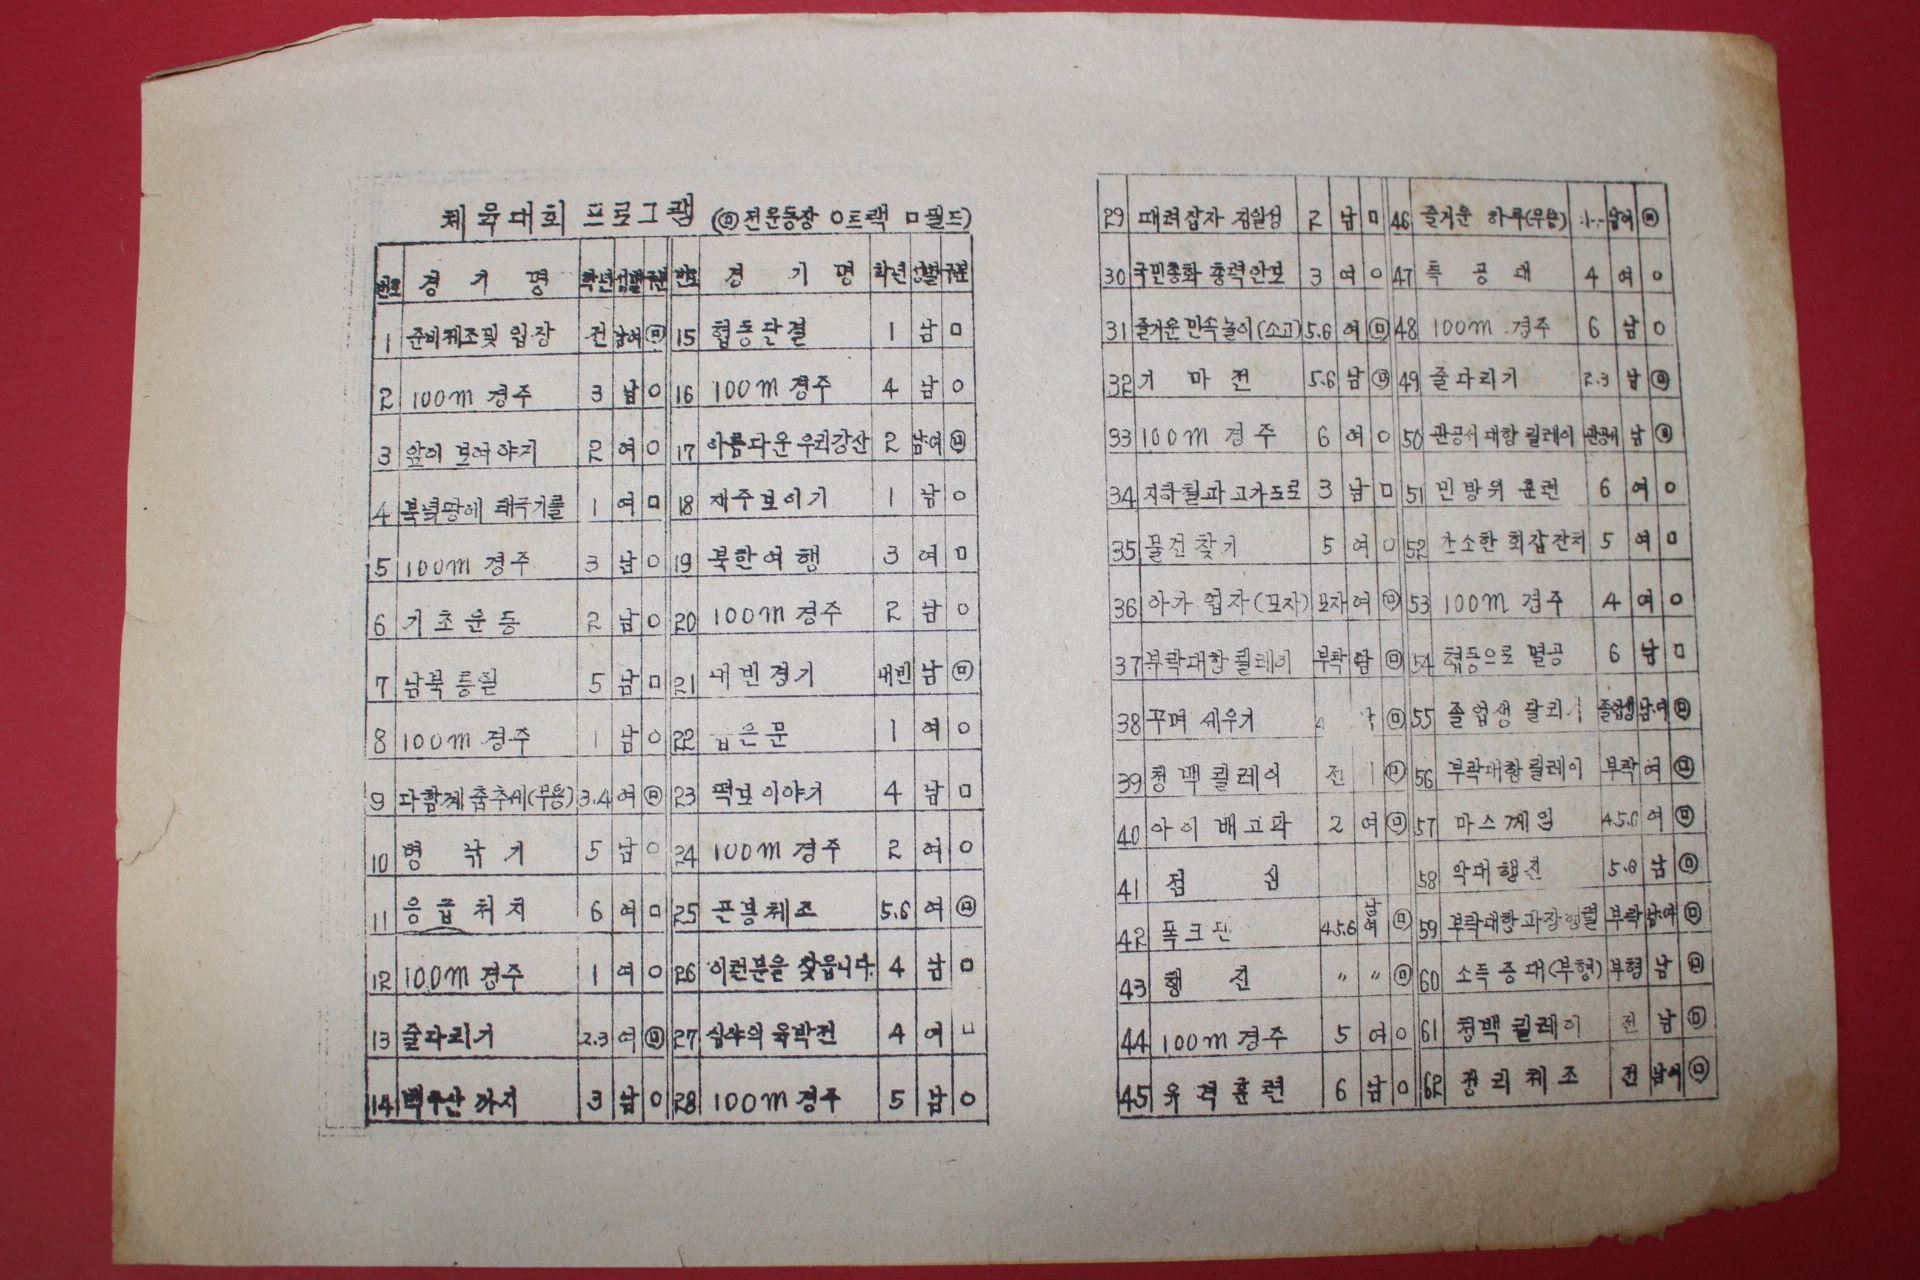 체육대회 프로그램 (◎전운동장 ○트랙 □필드)
번호 경기명 학년 성별 구분 번호 경기명 학년 성별 구분
1 준비체조및 입장 전 남여 ◎ 15 협동단결 1 남 □
2 100m 경주 3 남 ○ 16 100m 경주 4 남 ○
3 앞이 보여야지 2 여 ○ 17 아름다운 우리강산 2 남여 ◎
4 북녘땅에 태극기를 1 여 □ 18 재주보이기 1 남 ○
5 100m 경주 3 남 ○ 19 북한여행 3 여 □
6 기초운동 2 남 ○ 20 100m 경주 2 남 ○
7 남북통일 5 남 □ 21 내빈경기 내빈 남 ◎
8 100m 경주 1 남 ○ 22 좁은문 1 여 ○
9 다함께 춤추세(무용) 3.4 여 ◎ 23 떡보이야기 4 남 □
10 병 낚기 5 남 ○ 24 100m 경주 2 여 ○
11 응급처치 6 여 □ 25 곤봉체조 5.6 여 ◎
12 100m 경주 1 여 ○ 26 이런분을 찾읍니다 4 남 □
13 줄다리기 2.3 여 ◎ 27 심야의 육박전 4 여 □
14 백두산 까지 3 남 ○ 28 100m 경주 5 남 ○
29 때려잡자 김일성 2 남 □ 46 즐거운 하루(무용) 남여 ◎
30 국민총화 총력안보 3 여 ○ 47 특공대 4 여 ○
31 즐거운 민속놀이(소고) 5.6 여 ◎ 48 100m 경주 6 남 ○
32 기마전 5.6 남 ◎ 49 줄다리기 2.3 남 ◎
33 100m 경주 6 여 ○ 50 관공서 대항 릴레이 관공서 남 ◎
34 지하철과 고가도로 3 남 □ 51 민방위 훈련 6 여 ○
35 물건찾기 5 여 ○ 52 간소한 회갑잔치 5 여 □
36 아가 업자(모자) 모자 여 ◎ 53 100m 경주 4 여 ○
37 부락대항 릴레이 부락 남 ◎ 54 협동으로 멸공 6 남 □
38 꾸며 세우기 ◎ 55 졸업생 달리기 졸업생 남여 ◎
39 청백 릴레이 전 ◎ 56 부락대항릴레이 부락 여 ◎
40 아이 배고파 2 여 ◎ 57 마스게임 4.5.6 여 ◎
41 점심 58 악대행진 5.6 남 ◎
42 폭크댄 4.5.6 남여 ◎ 59 부락대항 가장행렬 부락 남여 ◎
43 행진 〃 〃 ◎ 60 소득증대(부형) 부형 남 ◎
44 100m 경주 5 여 ○ 61 청백 릴레이 전 남 ◎
45 유격훈련 6 남 ○ 62 정리체조 전 남여 ◎